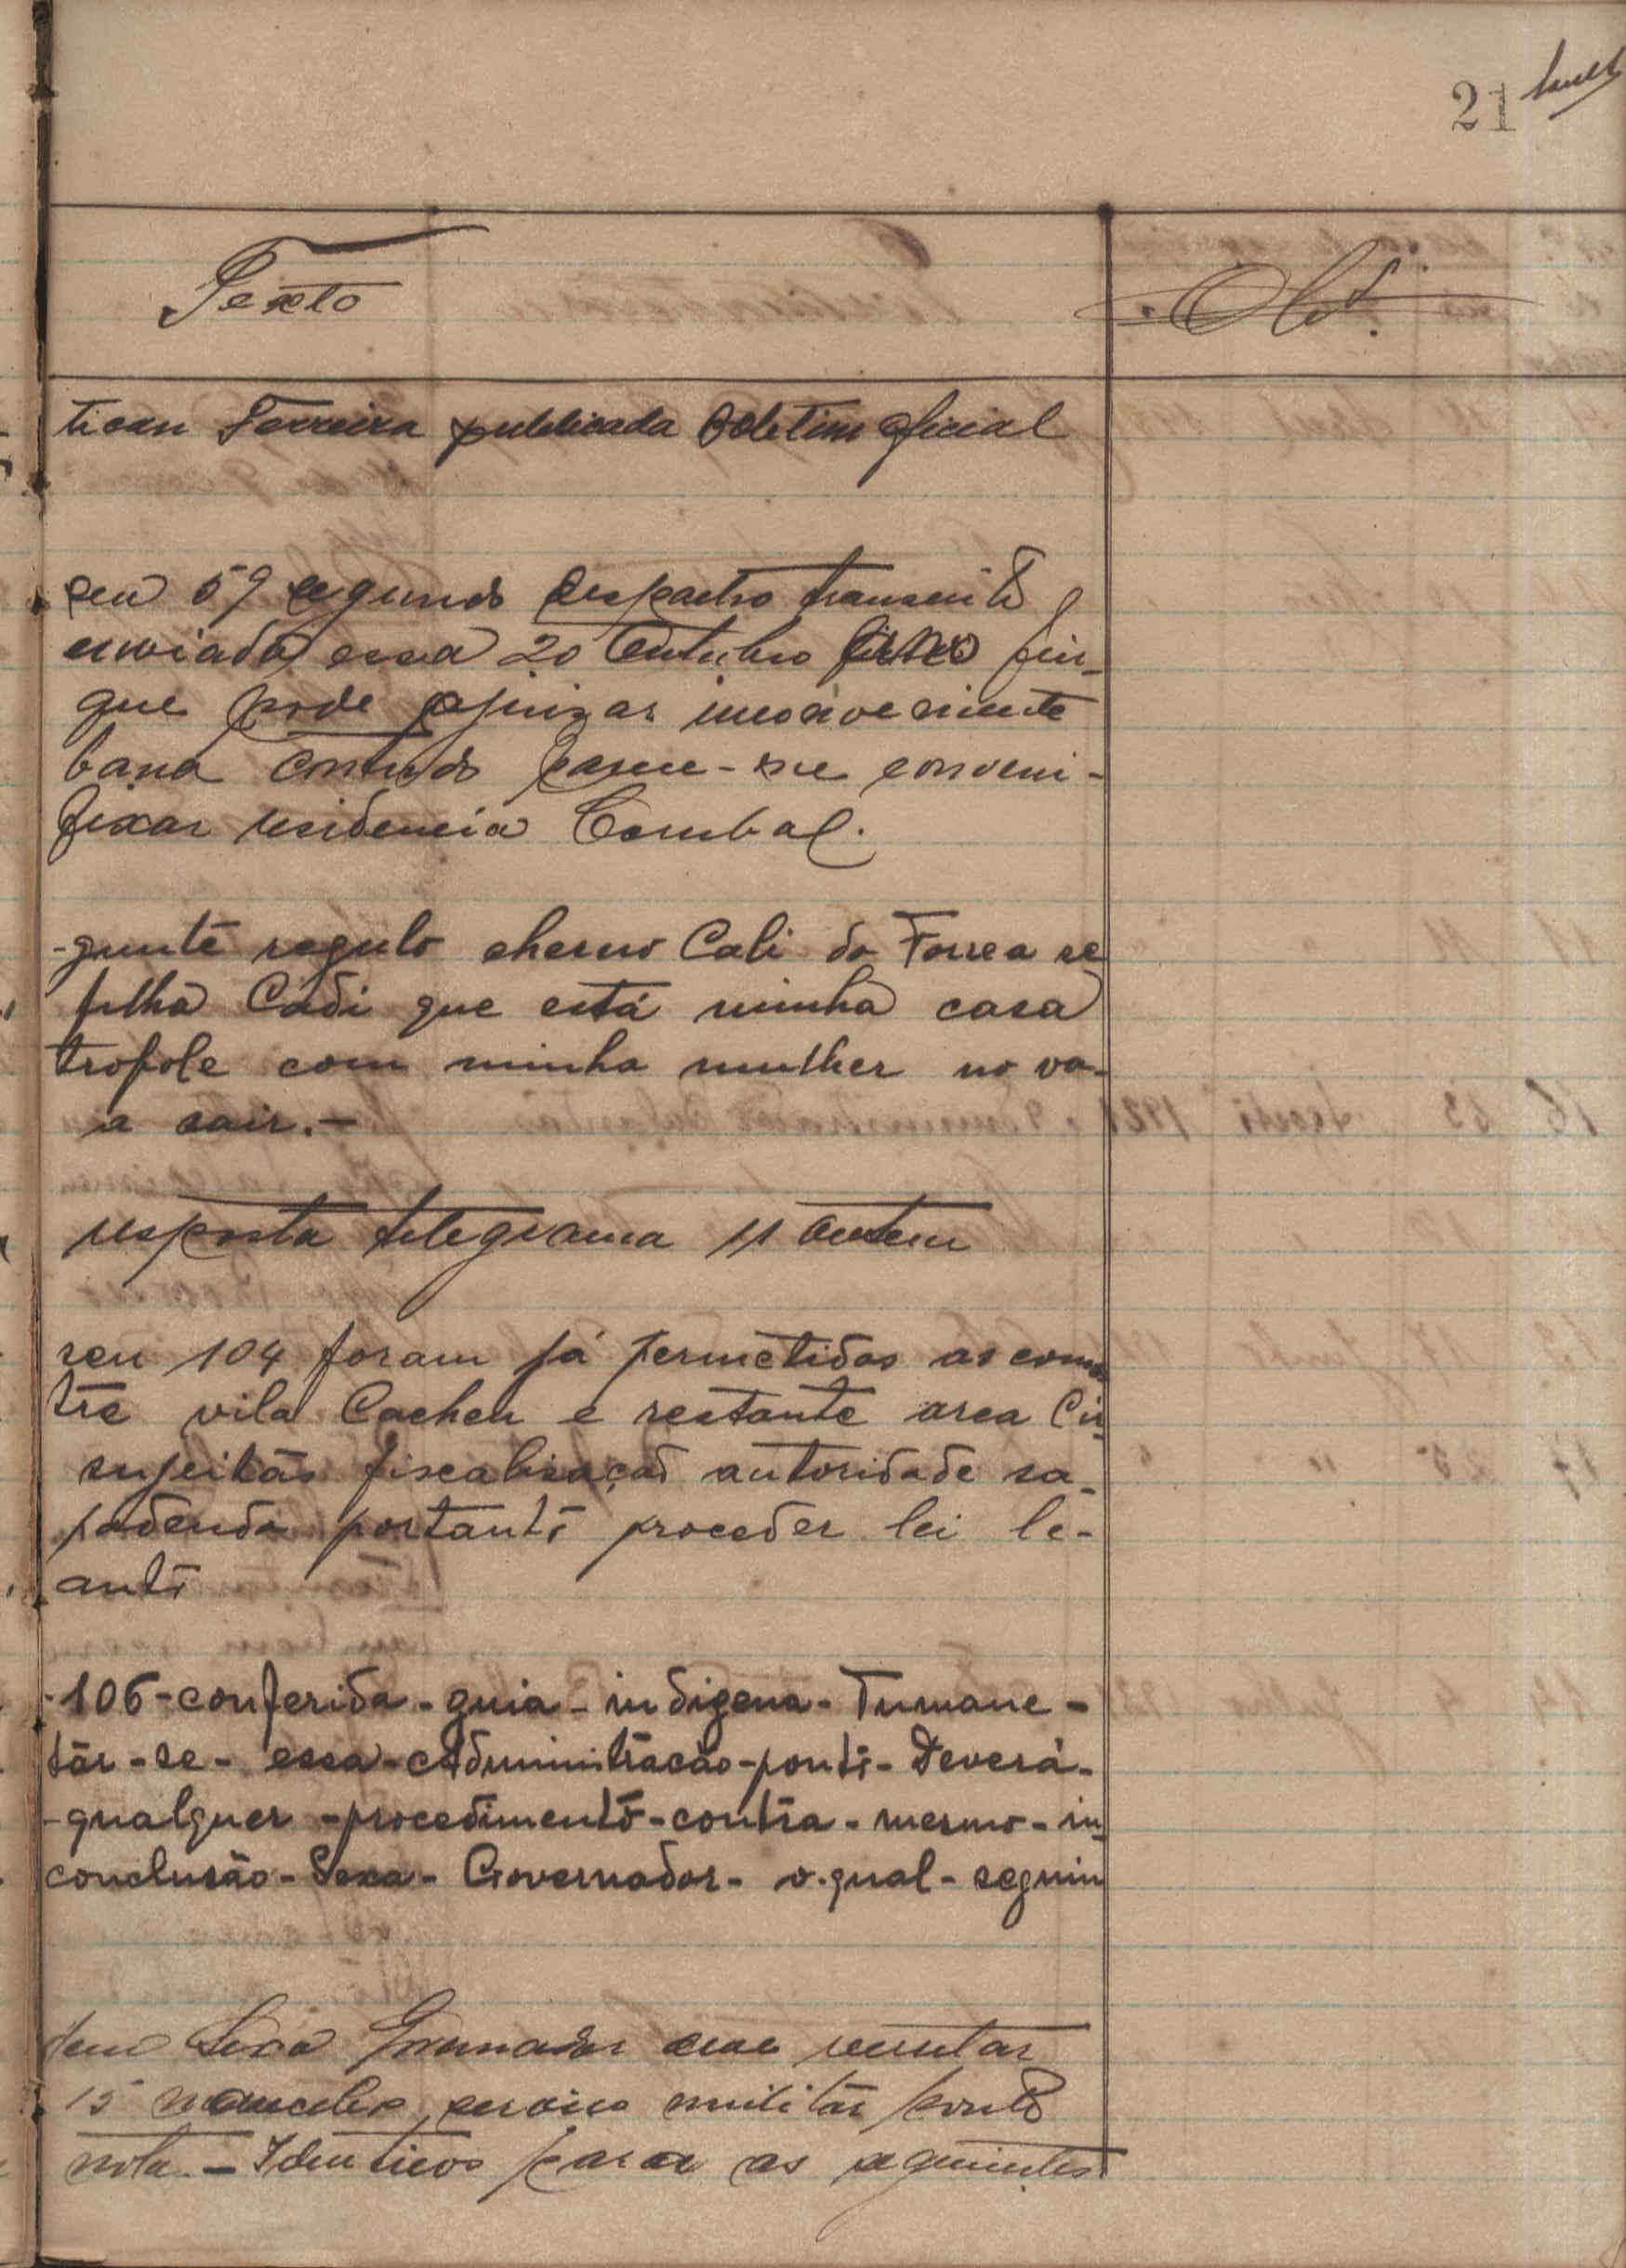 21
Texto
Obs.
ticau Ferreira publicada Boletim oficial
seu 59 segundo despacho transcrito
enviado essa 20 Outubro fin-
que pode ajuizar inconveniente
bana contudo parece-me conveni-
fixar residencia Corubal.
-gunte regulo cherno Cali do Forrea se
filha Cadi que está minha casa
tropole com minha mulher no va-
a sair.-
resposta telegrama 11 ontem
seu 104 foram já permetidas as
tre vila Cacheu e restante area Cir-
sujeitas fiscalisação autoridade sa-
podendo portanto proceder lei le-
anto
-106-conferida-guia-indigena-Tumane-
tar-se-essa-Administracão-ponto-Deverá-
-qualquer-procedimento-contra-mesmo-in-
conclusão-Sexa-Governador-o.qual-seguiu
Sexa Governador recrutar
15 mancebos serviço militar ponto
nota.-Identicos para as seguintes